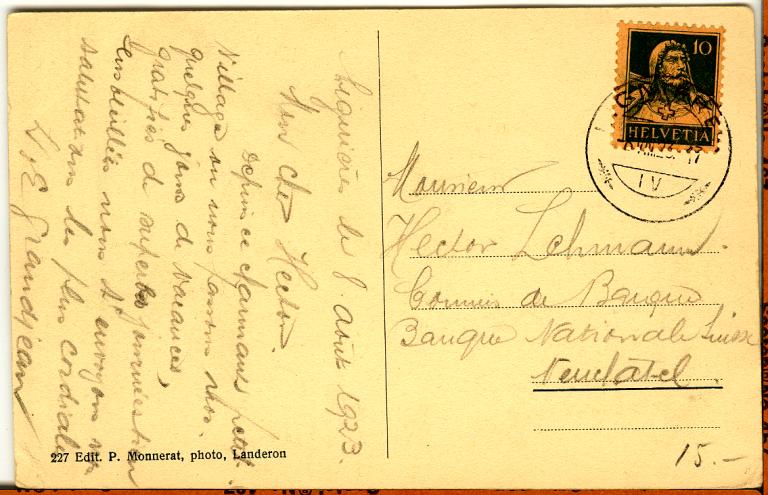 8. août 1923.
Mon cher Hector.
Depuis ce charmant petit
Village où nous passons nos
quelques jours de vacances,
gratifiés de superbes journées
ensoleillées nous t'envoyons nos
salutations les plus cordiales
L. E. Grandjean
227 Edit. P. Monnerat, photo, Landeron
10
HELVETIA
IV
Monsieur
Hector Lehmann.
Commis de Banque
Banque Nationale Suisse
Neuchatel.
15.-